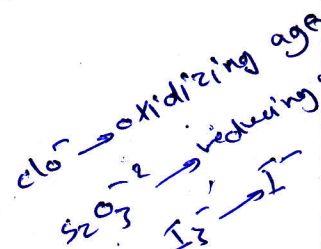 clo⁻ → oxidizing age
S₂O₃⁻² → reducing
I₃⁻ → I⁻